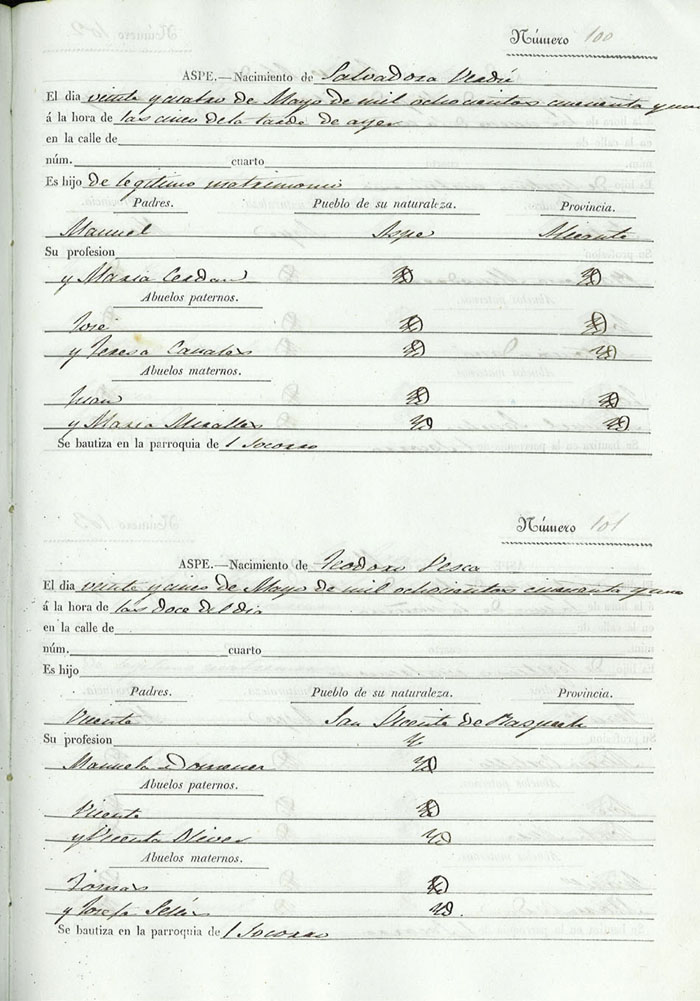 Número 100
ASPE.—Nacimiento de Salvadora Verdú
El dia veinte y cuatro de Mayo de mil ochocientos cincuenta y uno
á la hora de las cinco de la tarde de ayer
en la calle de
núm. cuarto
Es hijo de legitimo matrimonio
Padres. Pueblo de su naturaleza. Provincia.
Manuel Aspe Alicante
Su profesion
y Maria Cerdan
Abuelos paternos.
José
y Teresa Cañales
Abuelos maternos.
Juan
y Maria Miralles
Se bautiza en la parroquia de l Socorro
Número 101
ASPE.—Nacimiento de Teodoro
El dia veinte y cinco de Mayo de mil ochocientos cincuenta y uno
á la hora de las doce del dia
en la calle de
núm. cuarto
Es hijo
Padres. Pueblo de su naturaleza. Provincia.
Vicente San Vicente de
Su profesion
Manuela
Abuelos paternos.
Vicente
y Vicenta Oliver
Abuelos maternos.
Tomas
y Josefa Sellés
Se bautiza en la parroquia de l Socorro